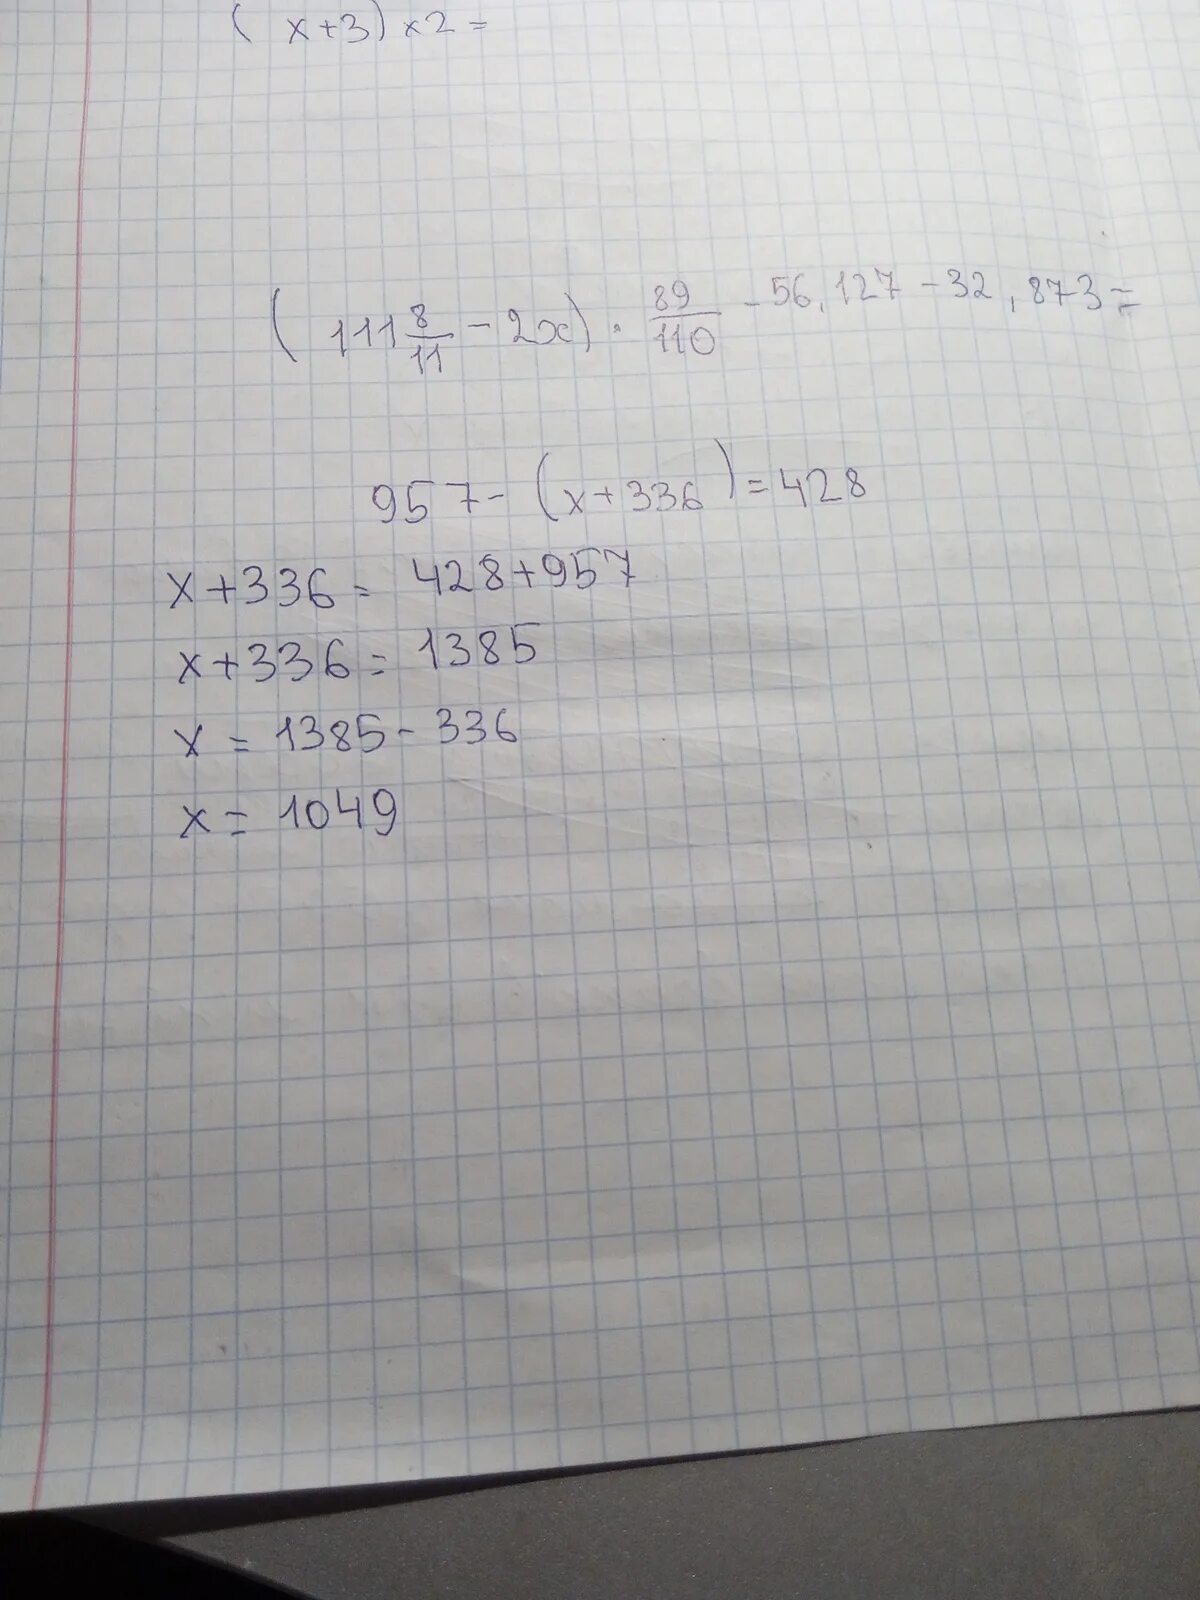 (x+3)x2=
(111 8/11 - 2x) · 89/110 - 56,127 - 32,873=
957-(x+336)=428
x+336= 428+957
x+336= 1385
x = 1385-336
x= 1049